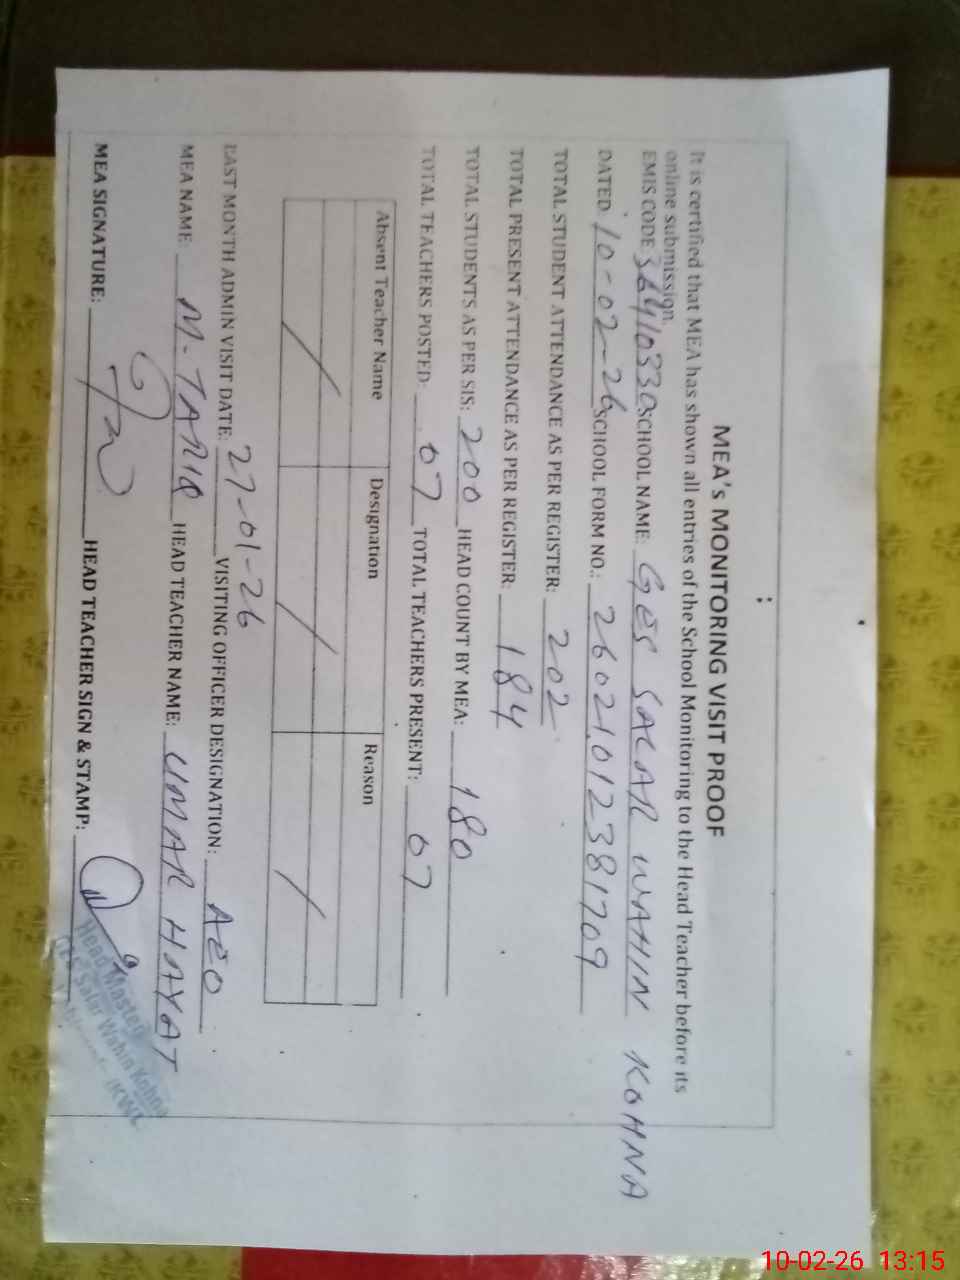 MEA's MONITORING VISIT PROOF
It is certified that MEA has shown all entries of the School Monitoring to the Head Teacher before its
online submission.
EMIS CODE 36410330 SCHOOL NAME: GES SALAR WAHIN KOHNA
DATED: 10-02-26 SCHOOL FORM NO.: 26021012381709
TOTAL STUDENT ATTENDANCE AS PER REGISTER: 202
TOTAL PRESENT ATTENDANCE AS PER REGISTER: 184
TOTAL STUDENTS AS PER SIS: 200 HEAD COUNT BY MEA: 180
TOTAL TEACHERS POSTED: 07 TOTAL TEACHERS PRESENT: 07
Absent Teacher Name Designation Reason
LAST MONTH ADMIN VISIT DATE: 27-01-26 VISITING OFFICER DESIGNATION: AEO
MEA NAME: M-TARIQ HEAD TEACHER NAME: UMAR HAYAT
MEA SIGNATURE: HEAD TEACHER SIGN & STAMP:
Head Master
GES Salar Wahin Kohna
(KWL)
10-02-26 13:15